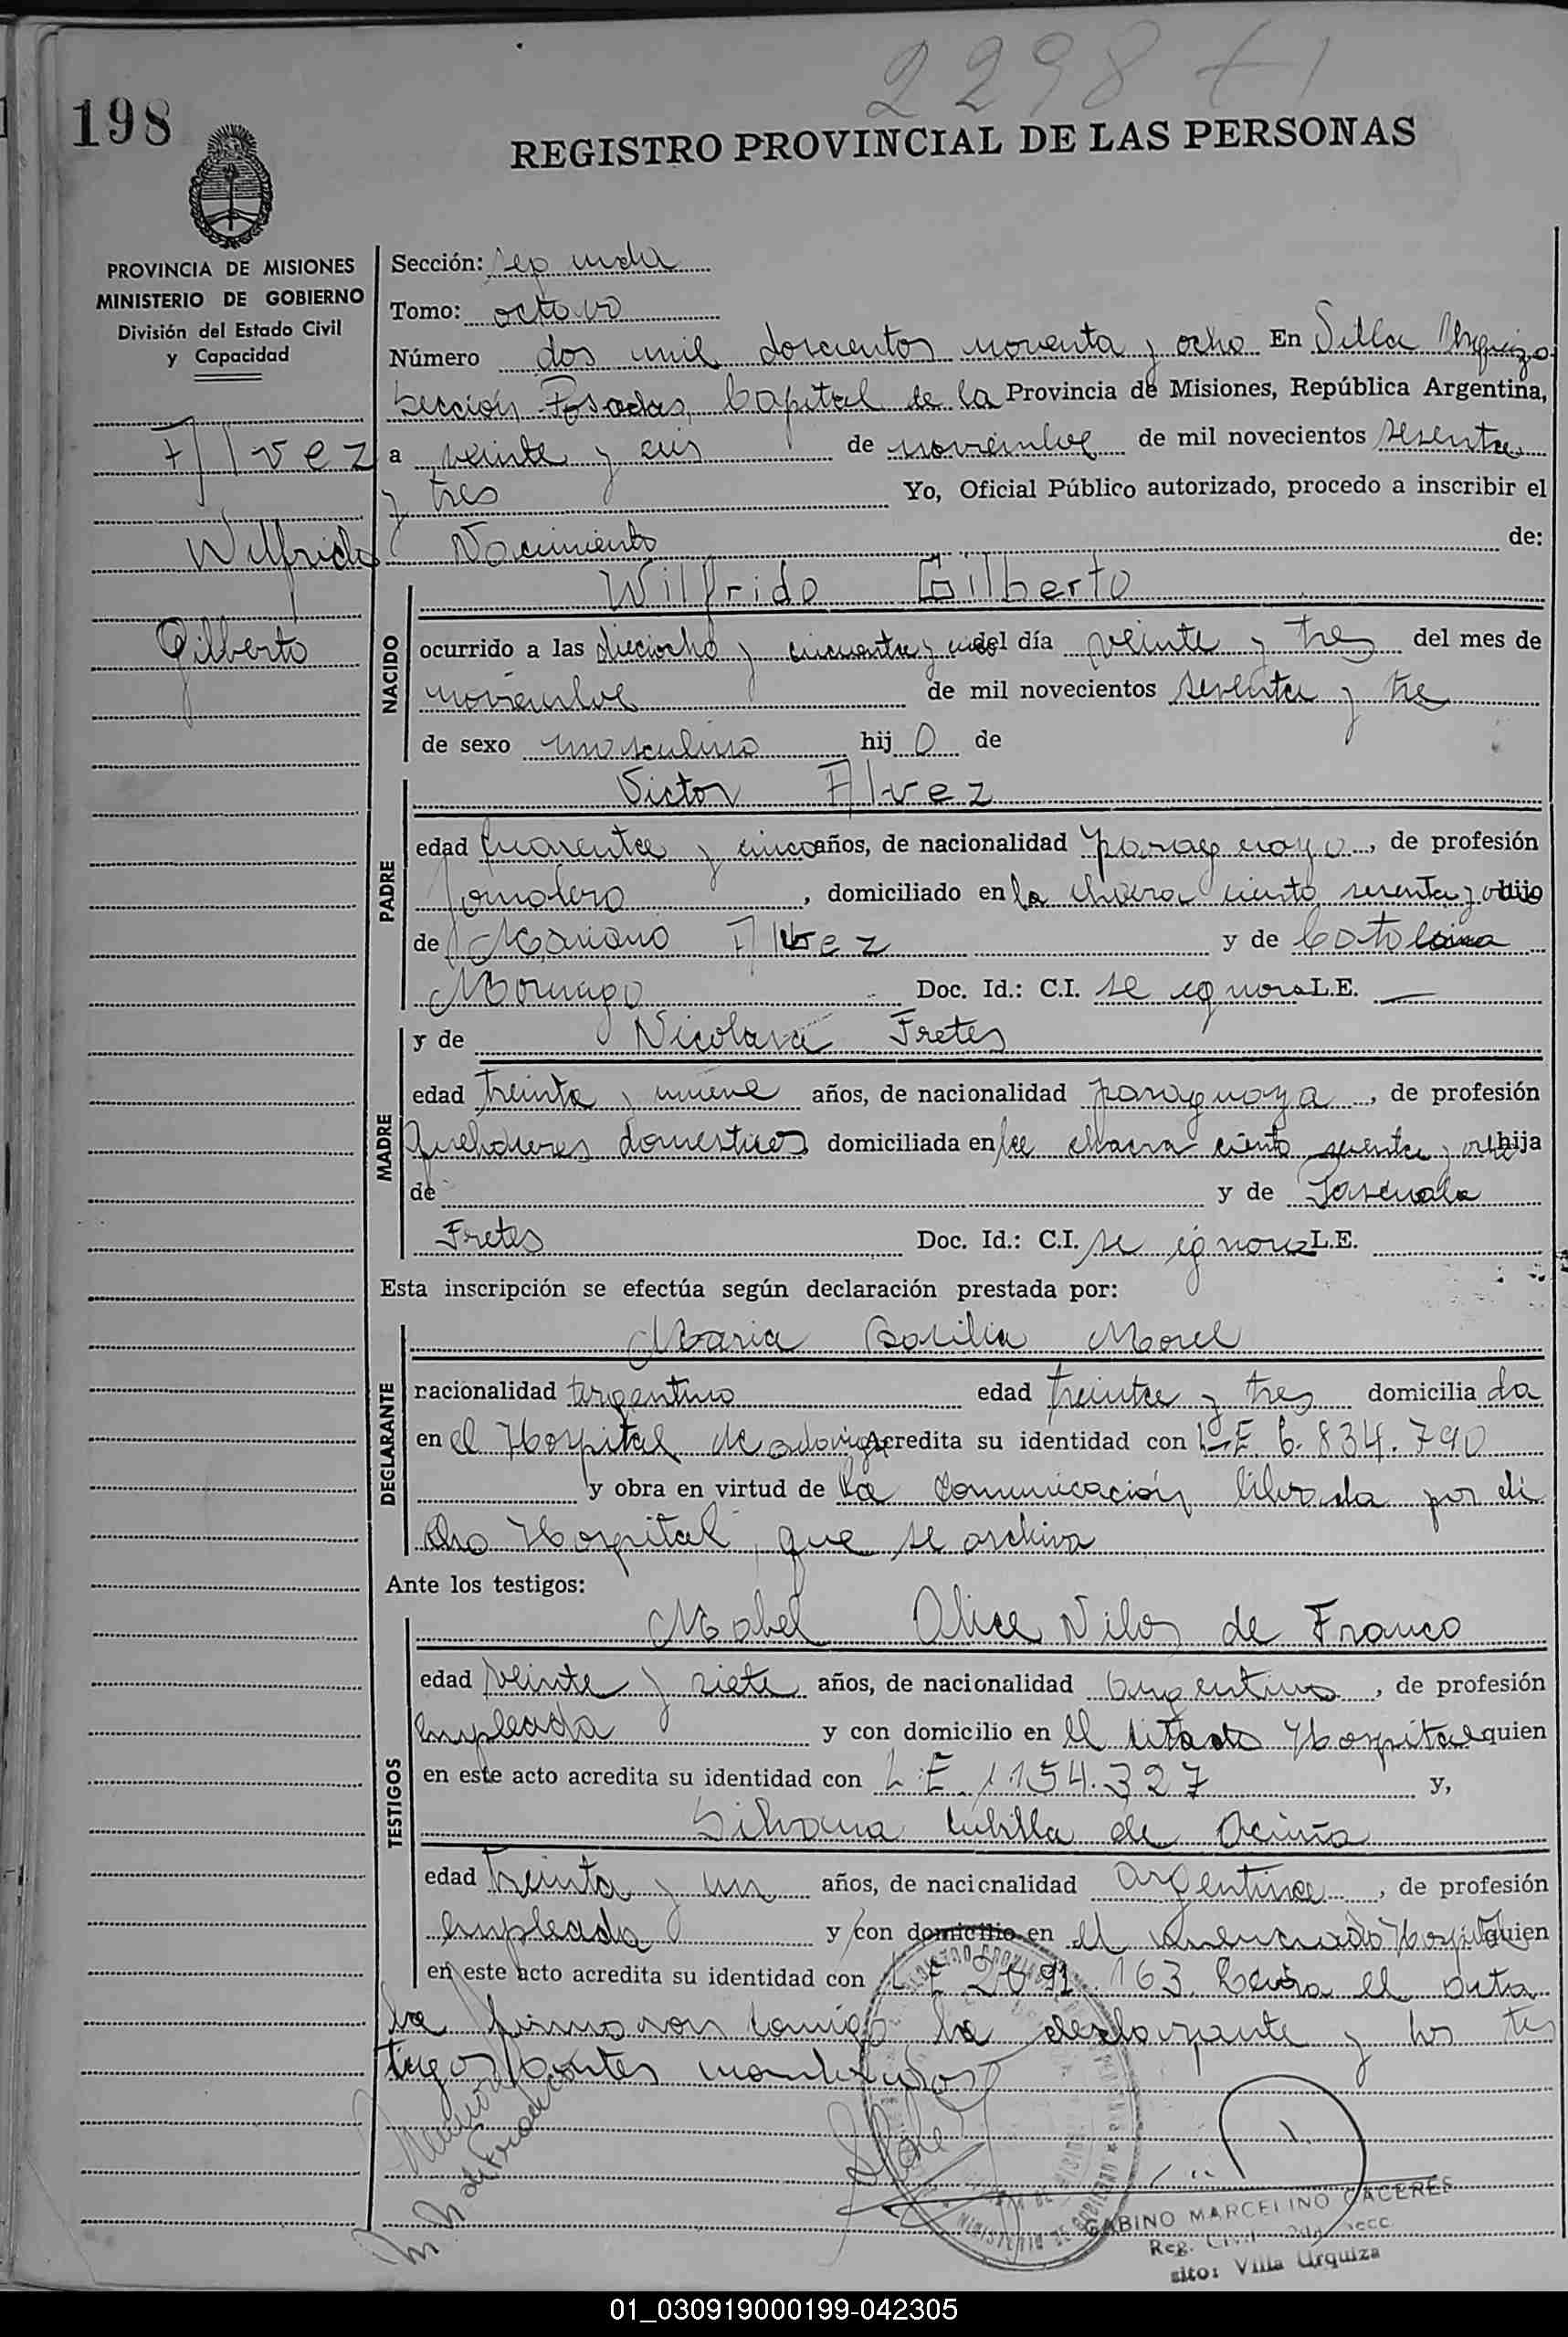 2298 t1
198
REGISTRO PROVINCIAL DE LAS PERSONAS
PROVINCIA DE MISIONES
MINISTERIO DE GOBIERNO
División del Estado Civil
y Capacidad
Alvez
Wilfrido
Gilberto
Sección: Segunda
Tomo: octavo
Número dos mil doscientos noventa y ocho En Villa Urquiza
Sección Posadas, Capital de la Provincia de Misiones, República Argentina,
a veinte y seis de noviembre de mil novecientos sesenta
y tres Yo, Oficial Público autorizado, procedo a inscribir el
Nacimiento de:
NACIDO
Wilfrido Gilberto
ocurrido a las dieciocho y cincuenta y del día veinte y tres del mes de
noviembre de mil novecientos sesenta y tre
de sexo masculino hij o de
PADRE
Victor Alvez
edad cuarenta y cinco años, de nacionalidad paraguayo, de profesión
Jornalero, domiciliado en la chacra ciento sesenta y ocho hijo
de Mariano Alvez y de Catalina
Doc. Id.: C.I. se ignora L.E. —
MADRE
y de Nicolasa Fretes
edad treinta y nueve años, de nacionalidad paraguaya, de profesión
Quehaceres domesticos domiciliada en la chacra ciento sesenta y ocho hija
de y de Pascuala
Fretes Doc. Id.: C.I. se ignora L.E.
Esta inscripción se efectúa según declaración prestada por:
DECLARANTE
Maria Basilia Morel
nacionalidad argentina edad treinta y tres domicilia da
en el Hospital Madariaga Acredita su identidad con L-E 6.834.790
y obra en virtud de la comunicación librada por di
cho Hospital, que se archiva
Ante los testigos:
TESTIGOS
Mabel Alice de Franco
edad veinte y siete años, de nacionalidad argentina, de profesión
empleada y con domicilio en el citado Hospital quien
en este acto acredita su identidad con L.E. 1.154.327 y,
Silvana Cubilla de Acuña
edad treinta y un años, de nacionalidad argentina, de profesión
empleada y con domicilio en el mencionado Hospital quien
en este acto acredita su identidad con L E 2.691.163. Leida el acta
la firmaron conmigo la declarante y los tes
tigos antes nombrados
GABINO MARCELINO CACERES
Reg. Civil Secc.
sito: Villa Urquiza
01_030919000199-042305